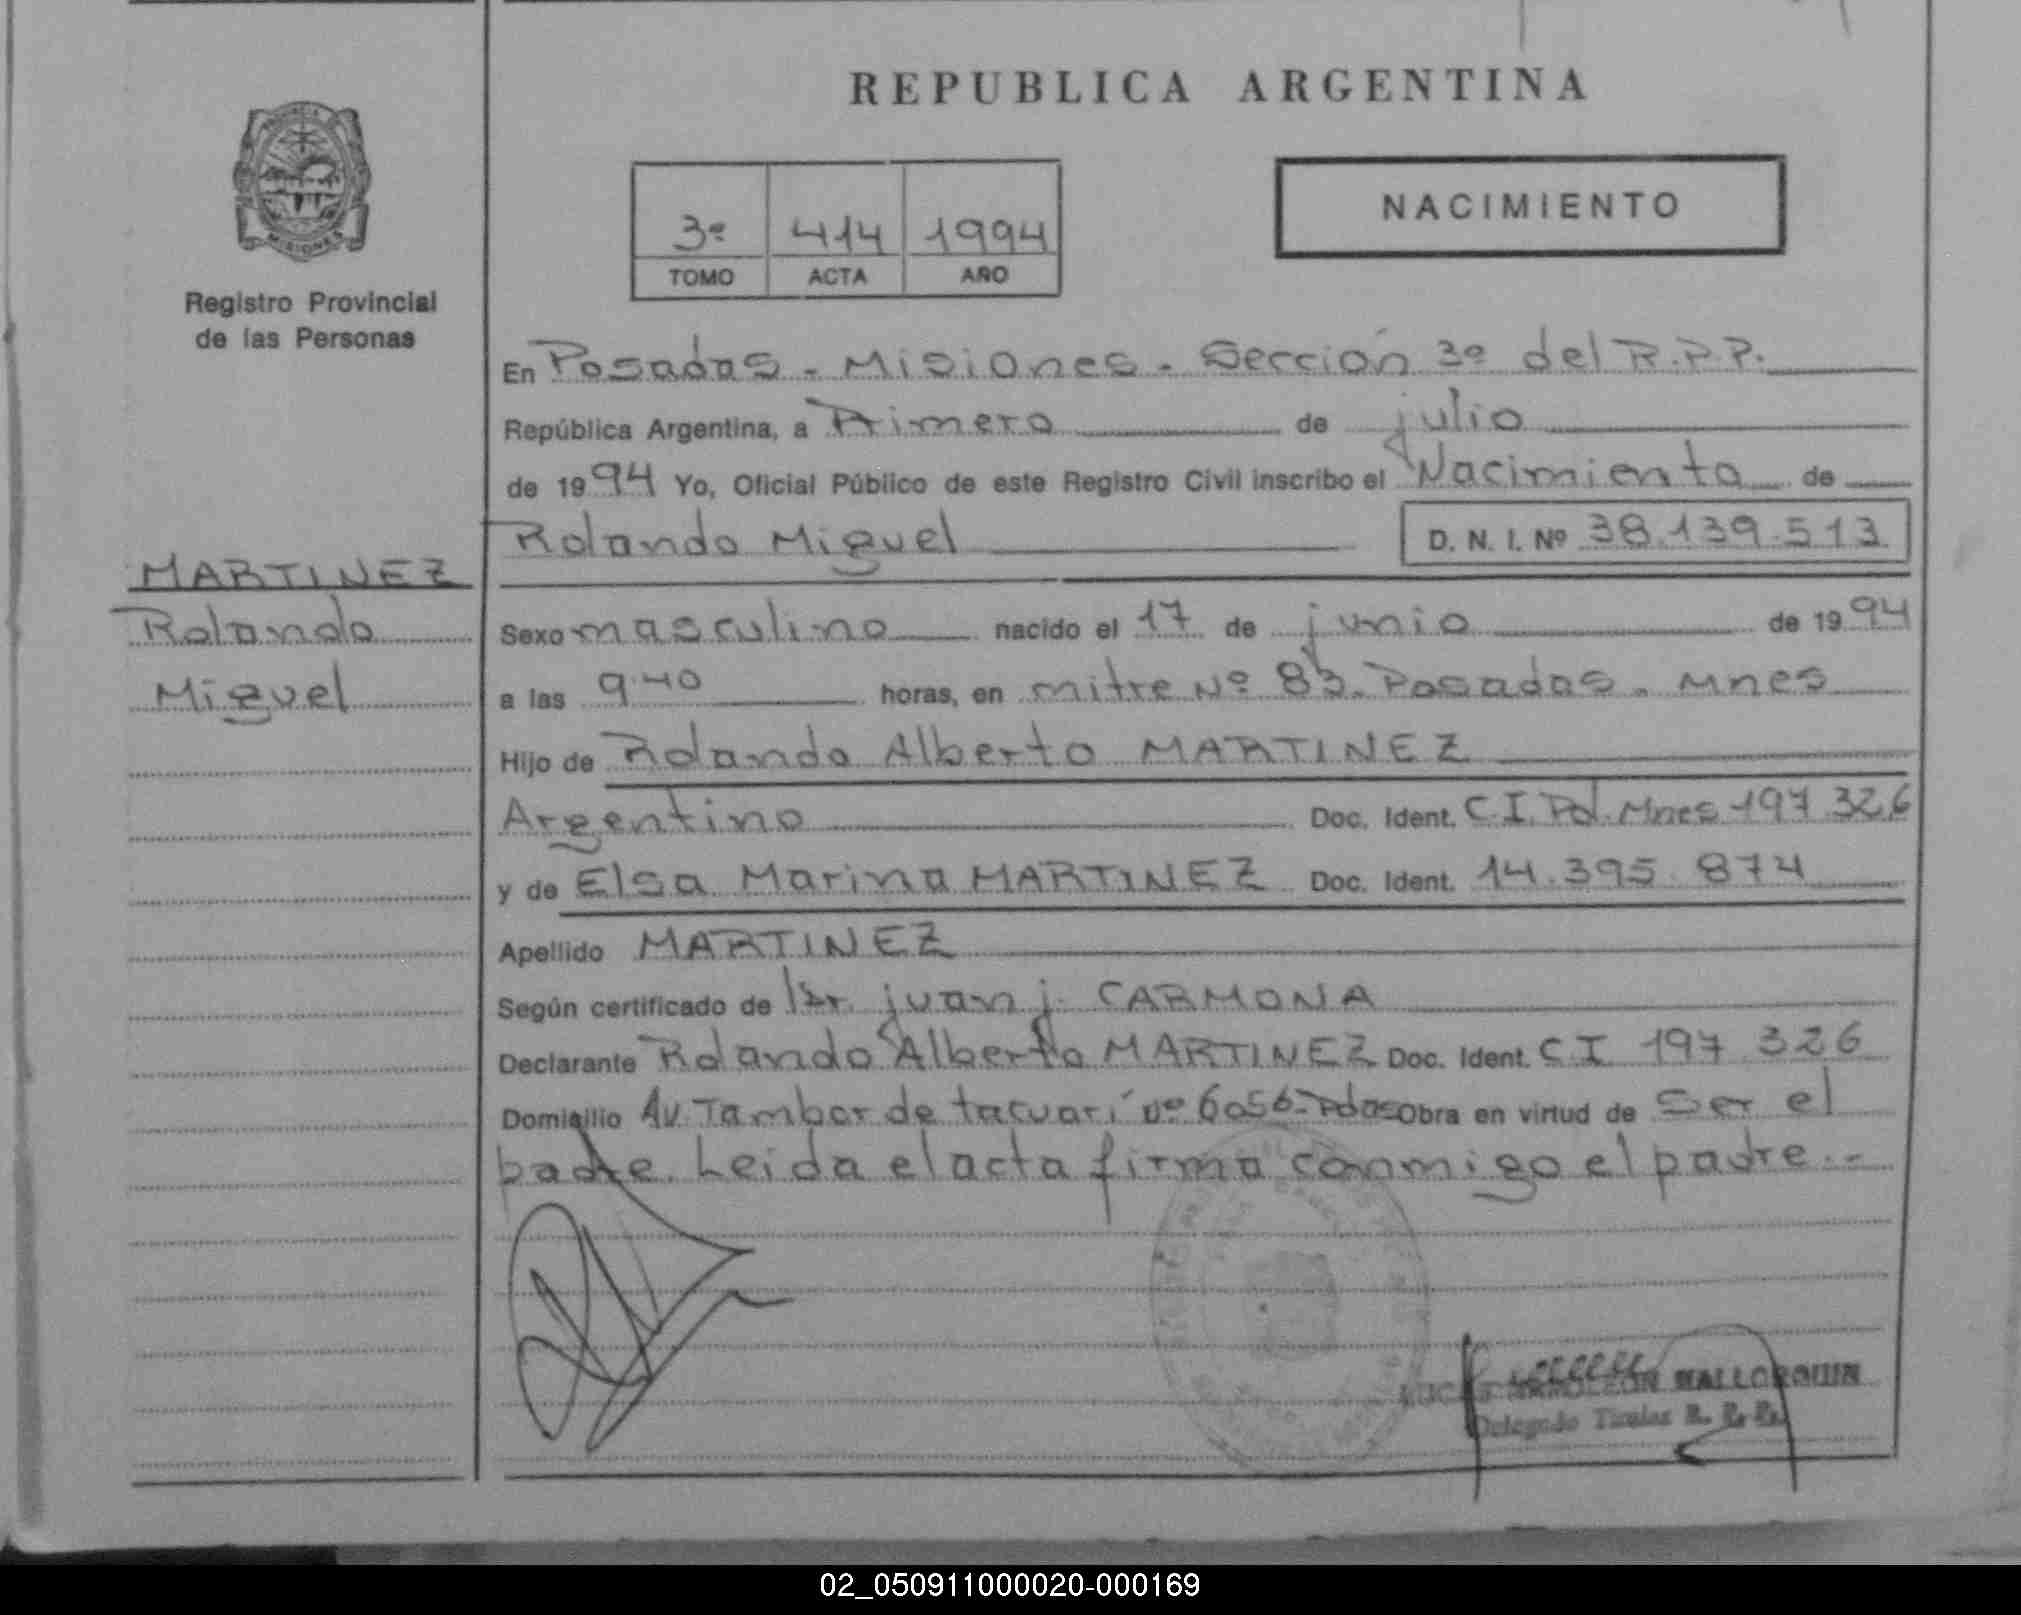 REPUBLICA ARGENTINA
MISIONES
Registro Provincial
de las Personas
3º 414 1994
TOMO ACTA AÑO
NACIMIENTO
En Posadas - Misiones - Sección 3º del R.P.P.
República Argentina, a Primero de julio
de 1994 Yo, Oficial Público de este Registro Civil inscribo el Nacimiento de
Rolando Miguel D. N. I. Nº 38.139.513
MARTINEZ
Rolando
Miguel
Sexo masculino nacido el 17 de junio de 1994
a las 9.40 horas, en mitre Nº 83. Posadas. Mnes
Hijo de Rolando Alberto MARTINEZ
Argentino Doc. Ident. C.I. Pol. Mnes 197.326
y de Elsa Marina MARTINEZ Doc. Ident. 14.395.874
Apellido MARTINEZ
Según certificado de Dr. juan j. CARMONA
Declarante Rolando Alberto MARTINEZ Doc. Ident. C I 197.326
Domicilio Av. Tambor de tacuarí nº 6056-Pdas Obra en virtud de Ser el
padre. Leida el acta firma conmigo el padre.-
MALLORQUIN
Delegado Titular R. P. P.
02_050911000020-000169